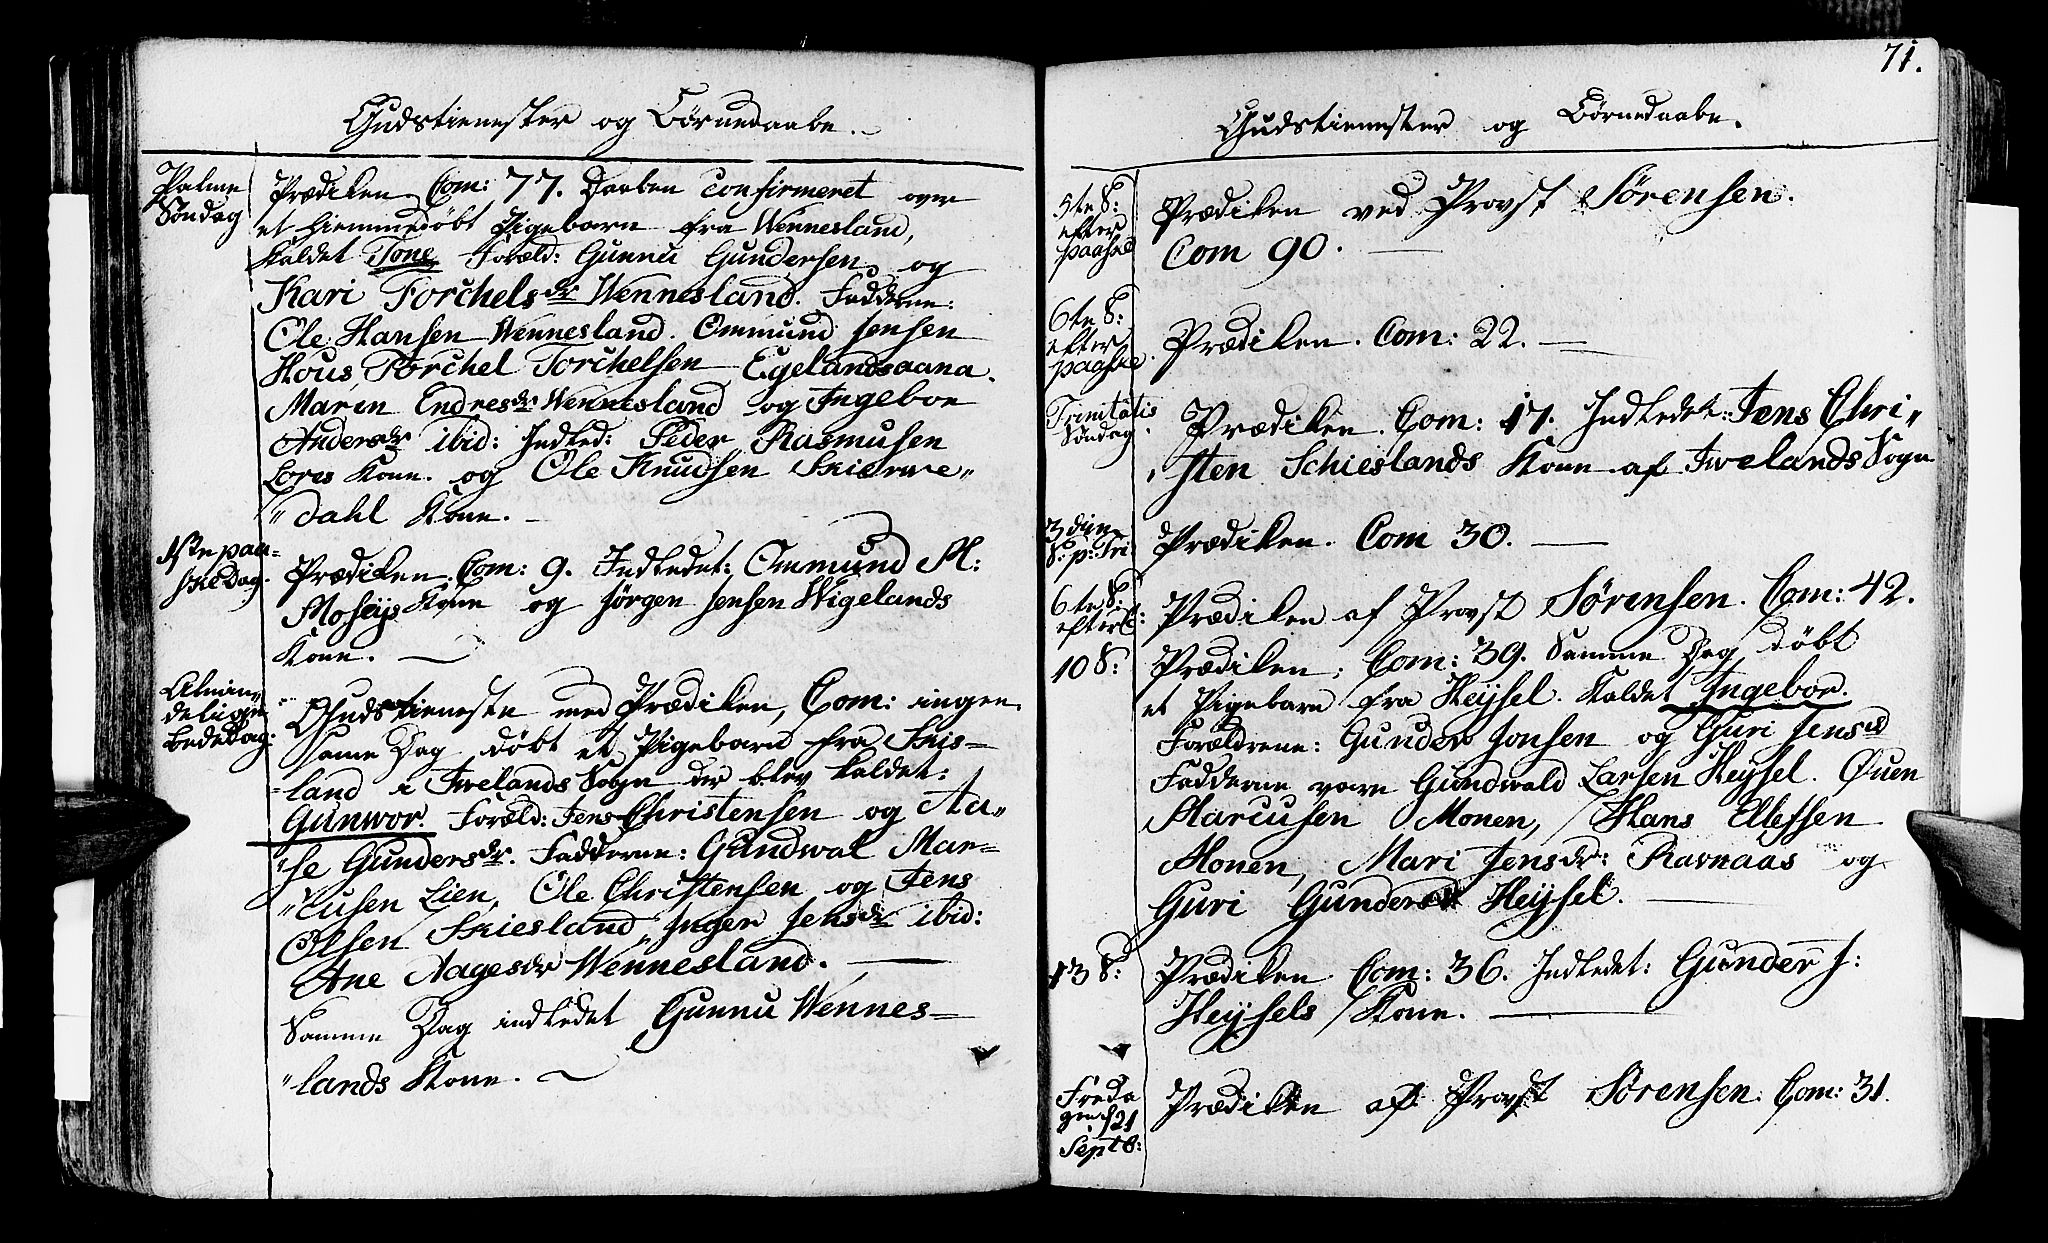 Gudstienester og Børnedaabe.
Palme Søndag
Prædiken Com: 77. Daaben confirmeret over
et hiemmedøbt Pigebarn fra Wennesland,
kaldet Tone. Foræld: Gunnu Gundersen og
Kari Torchelsdr Wennesland. Fadderne:
Ole Hansen Wennesland. Ommund Jensen
Hous, Torchel Torchelsen Egelandsaana.
Maren Endresdr Wennesland og Ingebor
Andersdr ibid: Indled: Peder Rasmusen
Kone. og Ole Knudsen Skierwe„
„dahl Kone.
1ste paa-
skeDag.
Prædiken. Com: 9. Indledet: Ommund M:
Moseys Kone og Jørgen Jensen Wigelands
Kone.
Almin„
delige
Bededag:
Gudstieneste med Prædiken, Com: ingen
same Dag døbt et Pigebarn fra Skis-
land i Iwelands Sogn der blev kaldet:
Gunwor. Foræld: Jens Christensen og Aa„
„se Gundersdr. Fadderne: Gundwal Mar-
„cusen Lien, Ole Christensen og Jens
Olsen Skiesland, Inger Jensdr ibid:
Ane Aagesdr Wennesland.
Samme Dag indledet Gunnu Wennes-
„lands Kone.
71.
Gudstienester og Børnedaabe.
5te S:
efter
paaske
Prædiken ved Provst Sørensen.
Com 90.
6te S:
efter
paaske.
Prædiken. Com: 22.
Trinitatis
Søndag.
Prædiken. Com: 17. Indledet: Jens Chri„
„sten Schieslands Kone af Iwelands Sogn
3die
S: p: Tri:
Prædiken. Com 30.
6te S:
efter
Prædiken af Provst Sørensen. Com: 42.
10 S:
Prædiken: Com: 39. Samme Dag døbt
et Pigebarn fra Heysel. Kaldet Ingebor.
Forældrene: Gunder Jonsen og Guri Jensd
Fadderne vare Gundwald Larsen Heysel. Ouen
Marcusen Monen, Hans Ellefsen
Monen, Mari Jensdr: Ravnaas og
Guri Gundersdr Heysel.
13 S:
Prædiken Com: 36. Indledet: Gunder J:
Heysels Kone.
Freda
gen d 21
Septb:
Prædiken af Provst Sørensen. Com: 31.